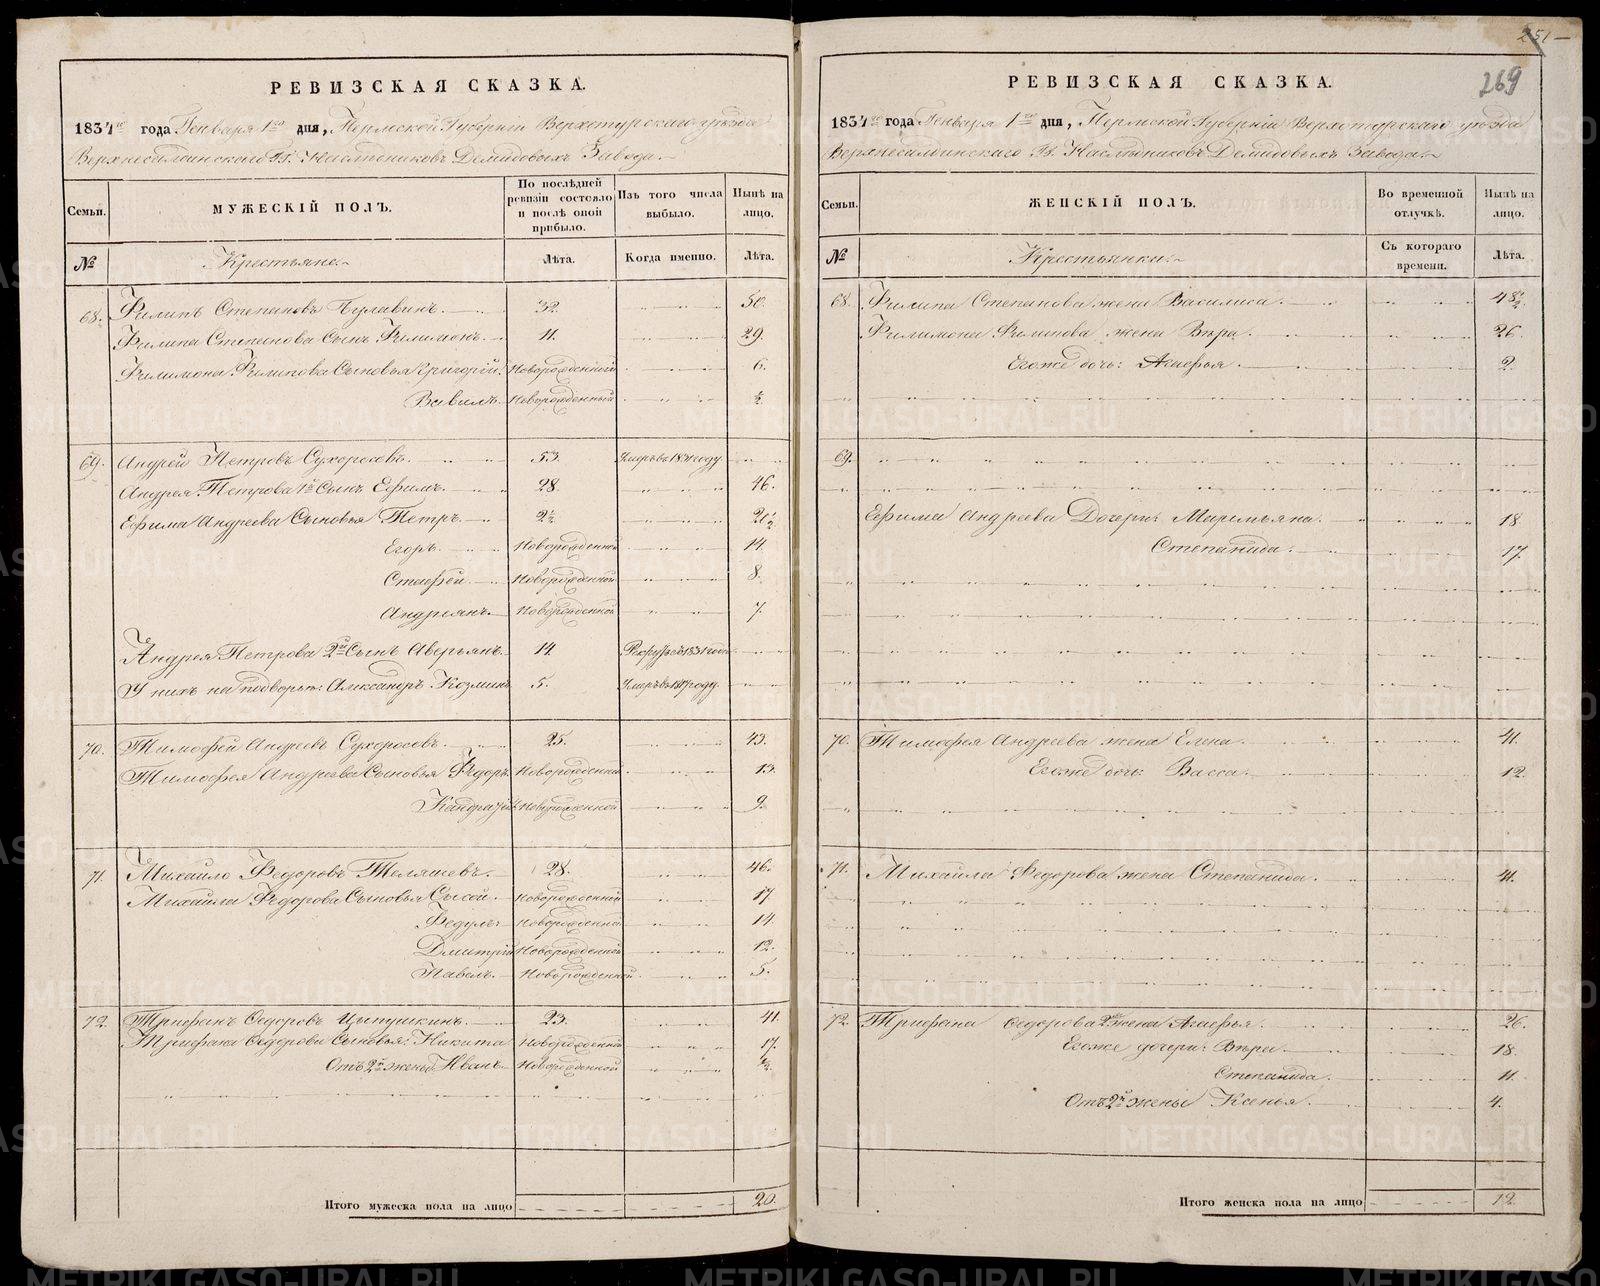 РЕВИЗСКАЯ СКАЗКА.
1834го года Генваря 1го дня, Пермской Губернiи Верхотурскаго уѣзда
Верхнесалдинскаго Гг. Наслѣдниковъ Демидовыхъ Завода.
Семьи.
МУЖЕСКIЙ ПОЛЪ.
По послѣдней ревизiи состояло и послѣ оной прибыло.
Изъ того числа выбыло.
Нынѣ на лицо.
№
Крестьяне.
Лѣта.
Когда именно.
Лѣта.
68. Филипъ Степановъ Булавинъ. 32. 50.
Филипа Степанова Сынъ Филимонъ. 11. 29.
Филимона Филипова Сыновья Григорiй. Новорожденный 6.
Вавилъ. Новорожденный ½.
69. Андрей Петровъ Сухоросовъ. 53. Умеръ въ 1831 году
Андрея Петрова 1й Сынъ Ефимъ. 28. 46.
Ефима Андреева Сыновья Петръ. 2½ 20½
Егоръ. Новорожденной 14.
Стафей. Новорожденной 8.
Андреянъ. Новорожденной 7.
Андрея Петрова 2й Сынъ Аверьянъ. 14. 1831 года
У нихъ на подворьѣ: Александръ Козминъ 5. Умеръ въ году.
70. Тимофей Андреевъ Сухоросовъ. 25. 43.
Тимофея Андреева Сыновья Ѳедоръ. Новорожденной 13.
Кандратiй. Новорожденной 9.
71. Михайло Ѳедоровъ Теляшевъ. 28. 46.
Михайла Ѳедорова Сыновья Сысой. Новорожденной 17
Федулъ Новорожденной 14.
Дмитрiй Новорожденной 12.
Павелъ. Новорожденной 5.
72. Трифанъ Ѳедоровъ Цыпушкинъ. 23. 41.
Трифана Ѳедорова Сыновья: Никита Новорожденной 17.
Отъ 2й жены Иванъ Новорожденной ½.
Итого мужеска пола на лицо 20.
251
269
РЕВИЗСКАЯ СКАЗКА.
1834го года Генваря 1го дня, Пермской Губернiи Верхотурскаго уѣзда
Верхнесалдинскаго Гг. Наслѣдниковъ Демидовыхъ Завода.
Семьи.
ЖЕНСКIЙ ПОЛЪ.
Во временной отлучкѣ.
Нынѣ на лицо.
№
Крестьянки.
Съ котораго времени.
Лѣта.
68. Филипа Степанова жена Василиса. 48½.
Филимона Филипова жена Вѣра. 26.
Егоже дочь: Агафья. 2.
69.
Ефима Андреева Дочери: Маремьяна. 18.
Степанида. 17.
70. Тимофея Андреева жена Елена. 41.
Егоже дочь: Васса. 12.
71. Михайла Ѳедорова жена Степанида. 41.
72. Трифана Ѳедорова 2я жена Агафья. 26.
Егоже дочери: Вѣра. 18.
Степанида. 11.
Отъ 2й жены Ксенья. 4.
Итого женска пола на лицо 12.
METRIKI.GASO-URAL.RU